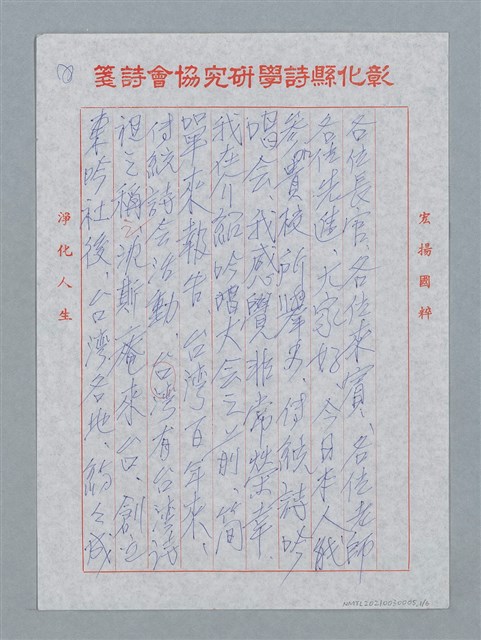 彰化縣詩學研究協會詩箋
宏揚國粹
各位長官、各位來賓、各位老師
各位先進、大家好、今日本人能
參貴校所舉办、傳統詩吟
唱会、我感覺非常榮幸、
我在介紹吟唱大会之前、簡
單來報告、台灣百年來、
傳統詩会活動、台灣有台灣詩
祖之稱沈斯庵來台、創立
東吟社後、台灣各地、紛々成
淨化人生
NMTL20210030005,1/6